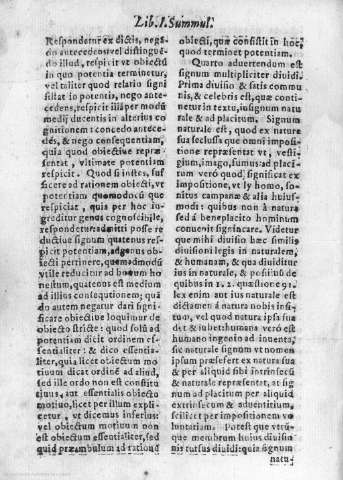 Lib. I. Summul.
Respondetur ex dictis, nega
do antecedens: vel distingué
do illud, respicit vt obiectū
in quo potentia terminetur,
vel taliter quod relatio signi
sistat in potentia, nego ante
cedens, respicit illā per modū
medij ducentis in alterius co
gnitionem: concedo antece-
dēs, & nego consequentiam,
quia quod obiectiuè repræ-
sentat, vltimate potentiam
respicit. Quod si instes, suf-
ficere ad rationem obiecti, vt
potentiam quomodocū que
respiciat, quia per hoc in-
greditur genus cognoscibile,
respondetur: admitti posse re
ductiue signum quatenus res-
picit potentiam, ad genus ob-
iecti pertinere, quemadmodū
vtile reducitur ad bonum ho
nestum, quatenus est medium
ad illius consequutionem; quā
do autem negatur dari signi-
ficare obiectiue loquimur de
obiecto stricte: quod solū ad
potentiam dicit ordinem es-
sentialiter: & dico essentia-
liter, quia licet obiectum mo
tiuum dicat ordinē ad aliud,
sed ille ordo non est constitu
tiuus, aut essentialis obiecto
motiuo, licet per illum expli
cetur, vt dicemus inferius:
vel obiectum motiuum non
est obiectum essentialiter, sed
quid præambulum ad rationē
obiecti, quæ consistit in hoc,
quod terminet potentiam.
Quarto aduertendum est
signum multipliciter diuidi.
Prima diuisio & satis commu
nis, & celebris est, quæ conti-
netur in textu, in signum natu
rale & ad placitum. Signum
naturale est, quod ex natura
sua seclusis que omni imposi-
tione repræsentat vt, vesti-
gium, imago, fumus: ad placi-
tum verò quod significat ex
impositione, vt ly homo, so-
nitus campanæ & alia huius-
modi: quibus non à naturà
sed à beneplacito hominum
conuenit significare. Videtur
que mihi diuisio hæc similis
diuisioni legis in naturalem,
& humanam, & qua diuiditur
ius in naturale, & positiuū de
quibus in 1. 2. quæstione 91.
lex enim aut ius naturale est
dictamen à natura nobis insi-
tum, vel quod natura ipsa sua
det & iubet: humana verò est
humano ingenio ad inuenta,
sic naturale signum vt nomen
ipsum præsefert ex natura sua
& per aliquid sibi intrinsecū
& naturale repræsentat, at sig
num ad placitum per aliquid
extrinsecum & aduentitium,
scilicet per impositionem vo
luntariam. Potest que vtrū-
que membrum huius diuisio
nis rursus diuidi: quia signum
natu-